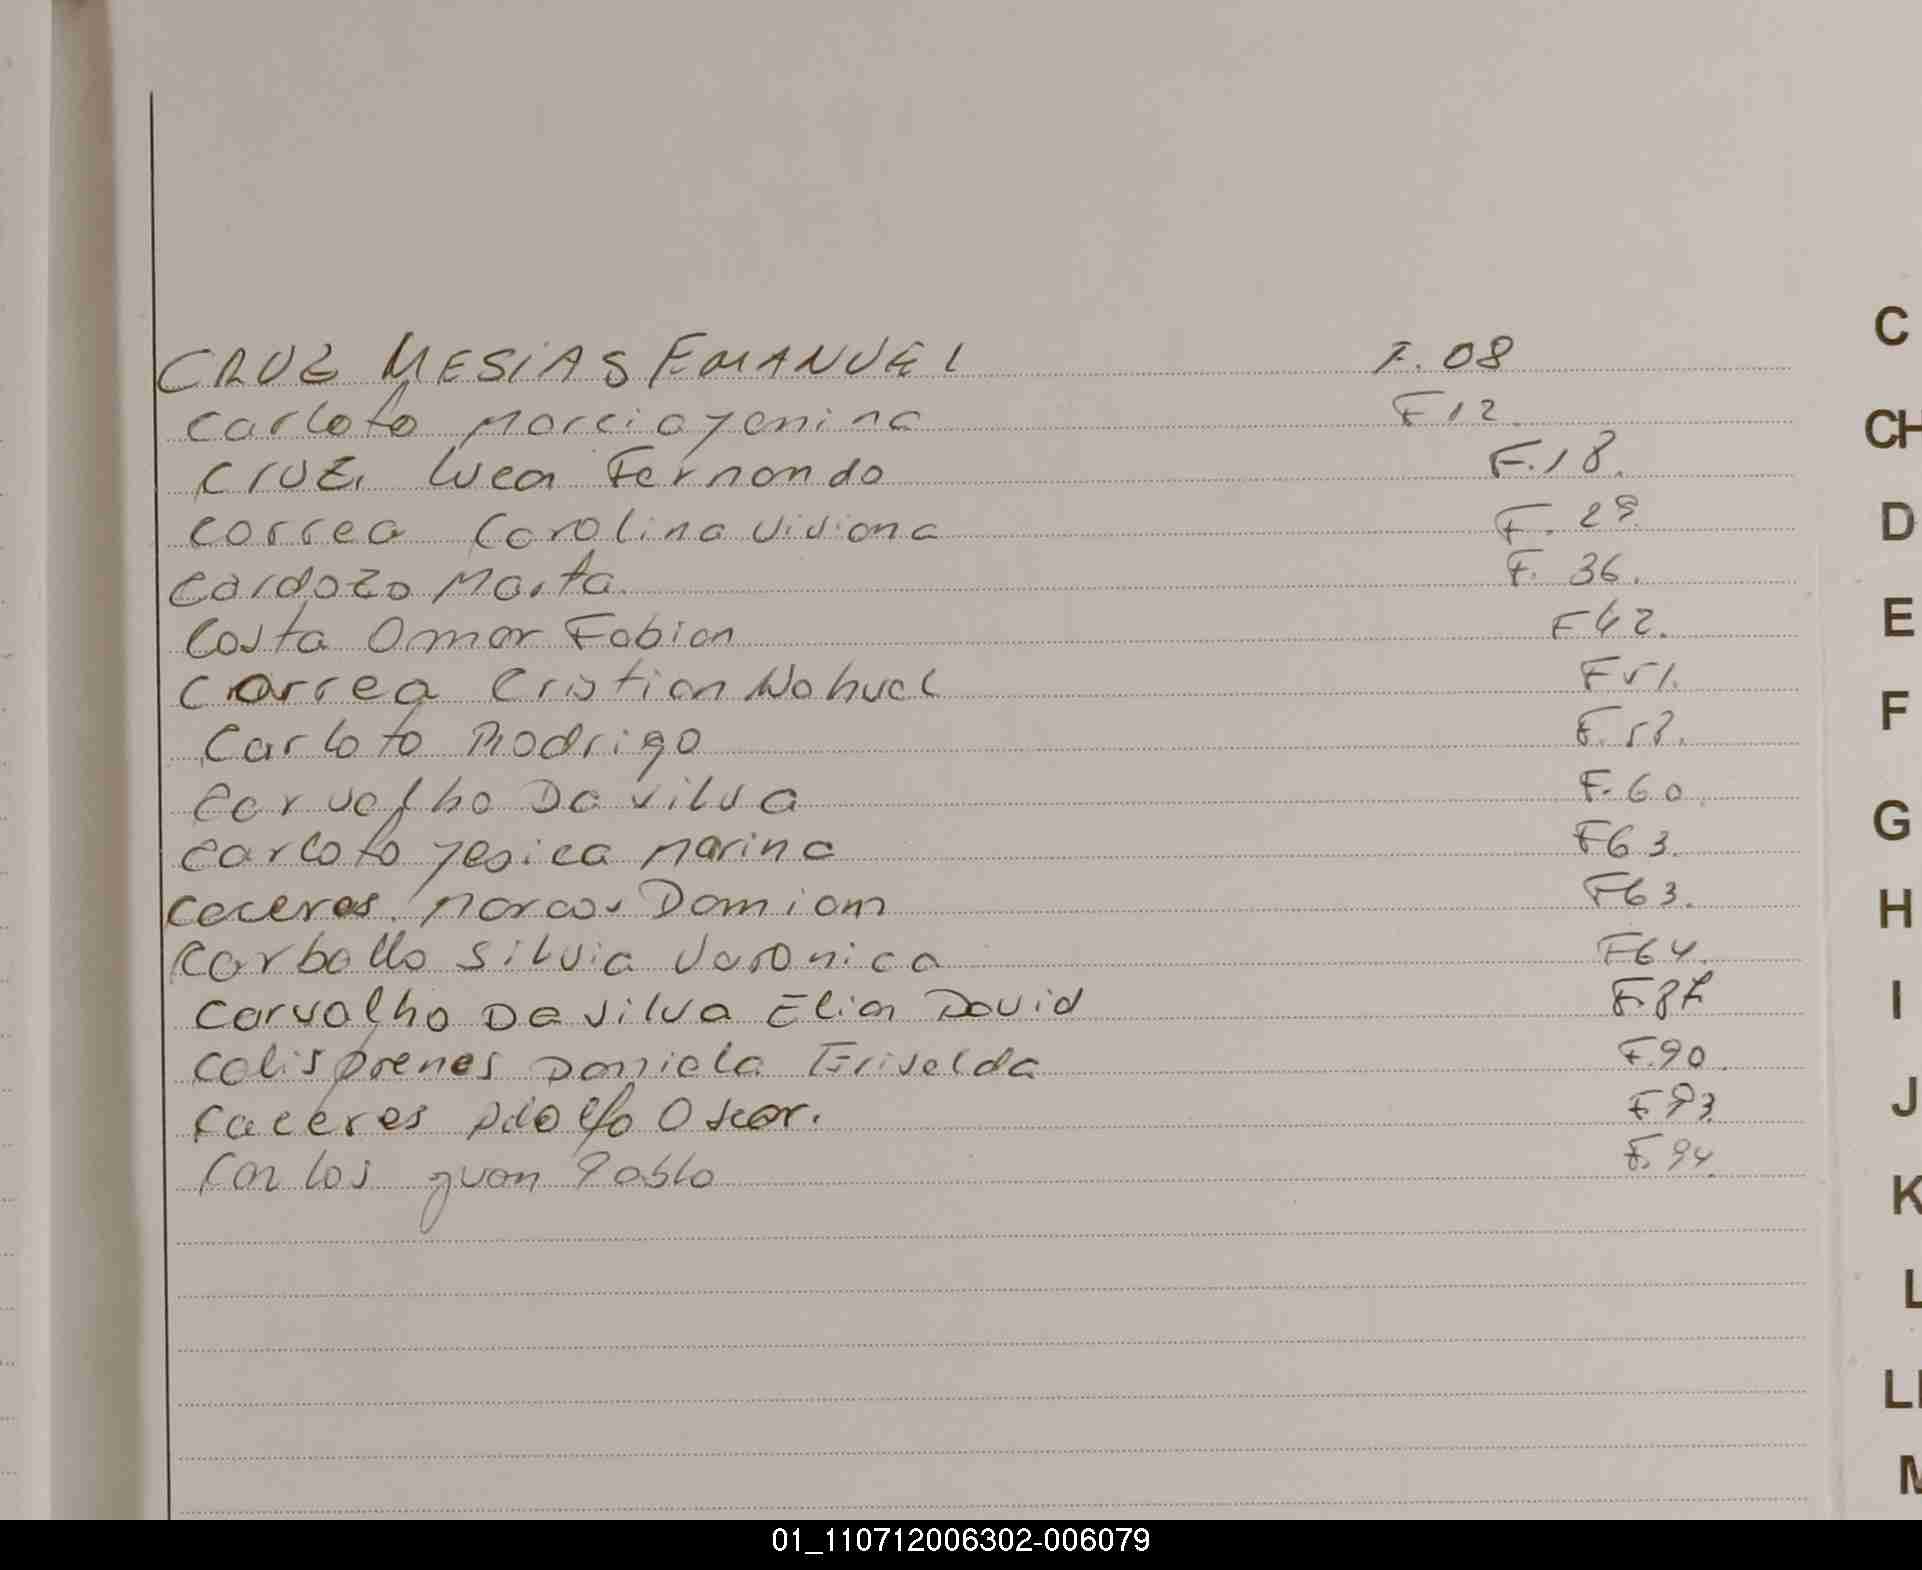 CRUZ MESIAS EMANUEL F. 08
Carloto Marcia Yanina F 12.
Cruz, Luca Fernando F. 18.
Correa Carolina Viviana F. 29.
Cardozo Marta. F. 36.
Costa Omar Fabian F 42.
Correa Cristian Nahuel F 51.
Carloto Rodrigo F. 52.
Carvalho Da Silva F. 60.
Carloto Yesica Marina F63.
Caceres. Marcos Damiam F63.
Carballo Silvia Veronica F64.
Carvalho Da Silva Elian David F. 87
Daniela Griselda F.90.
Caceres Adolfo Oscar. F. 93.
Carlos Juan Pablo F. 94.
C
CH
D
E
F
G
H
I
J
K
L
LL
M
01_110712006302-006079